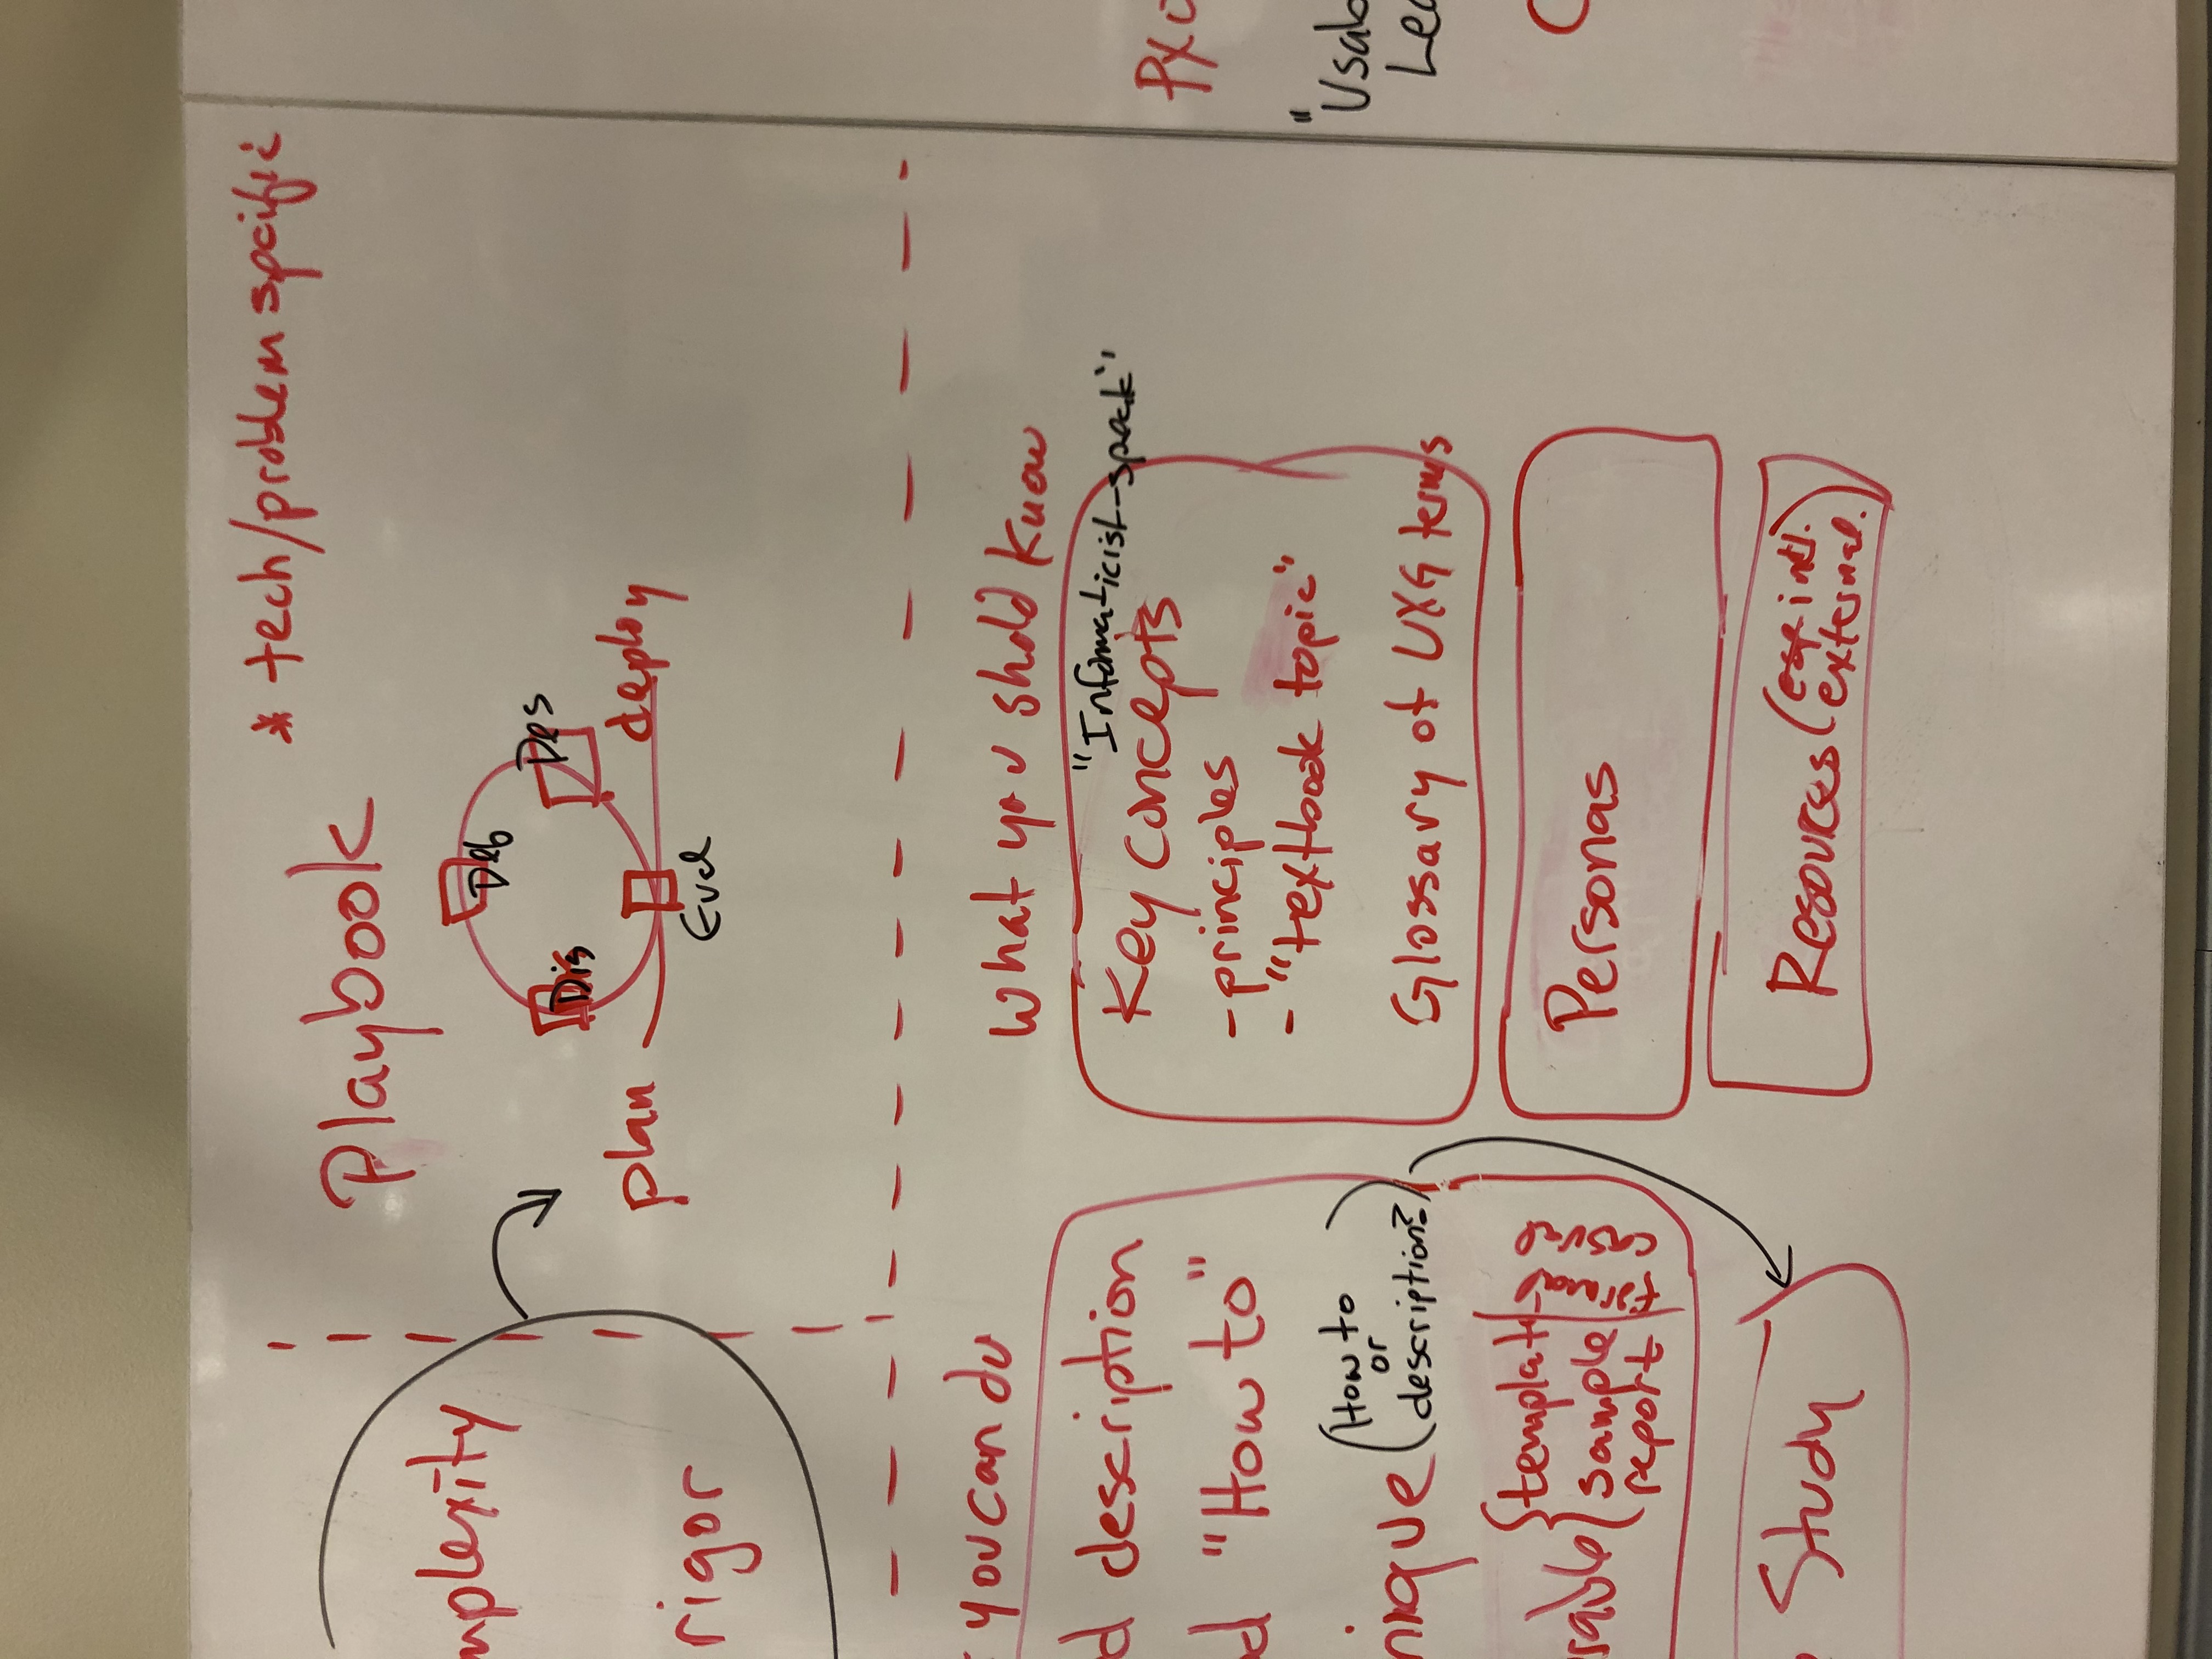 * tech/problem specific
Playbook
mplexity
rigor
Deb
Des
Dis
plan
deploy
Eval
you can do
d description
d "How to"
nique (How to
or
description?)
template
sample
report
formal
casual
Study
What you shold Know
"Informaticist-speak"
Key concepts
- principles
- "textbook topic"
Glossary of UXG terms
Personas
Resources (esp. intl.
external.)
PX
"Usab
Lea